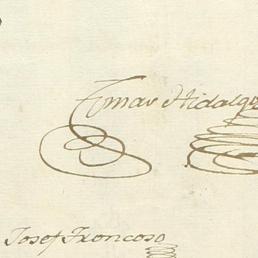 Tomas Hidalgo
Josef Troncoso